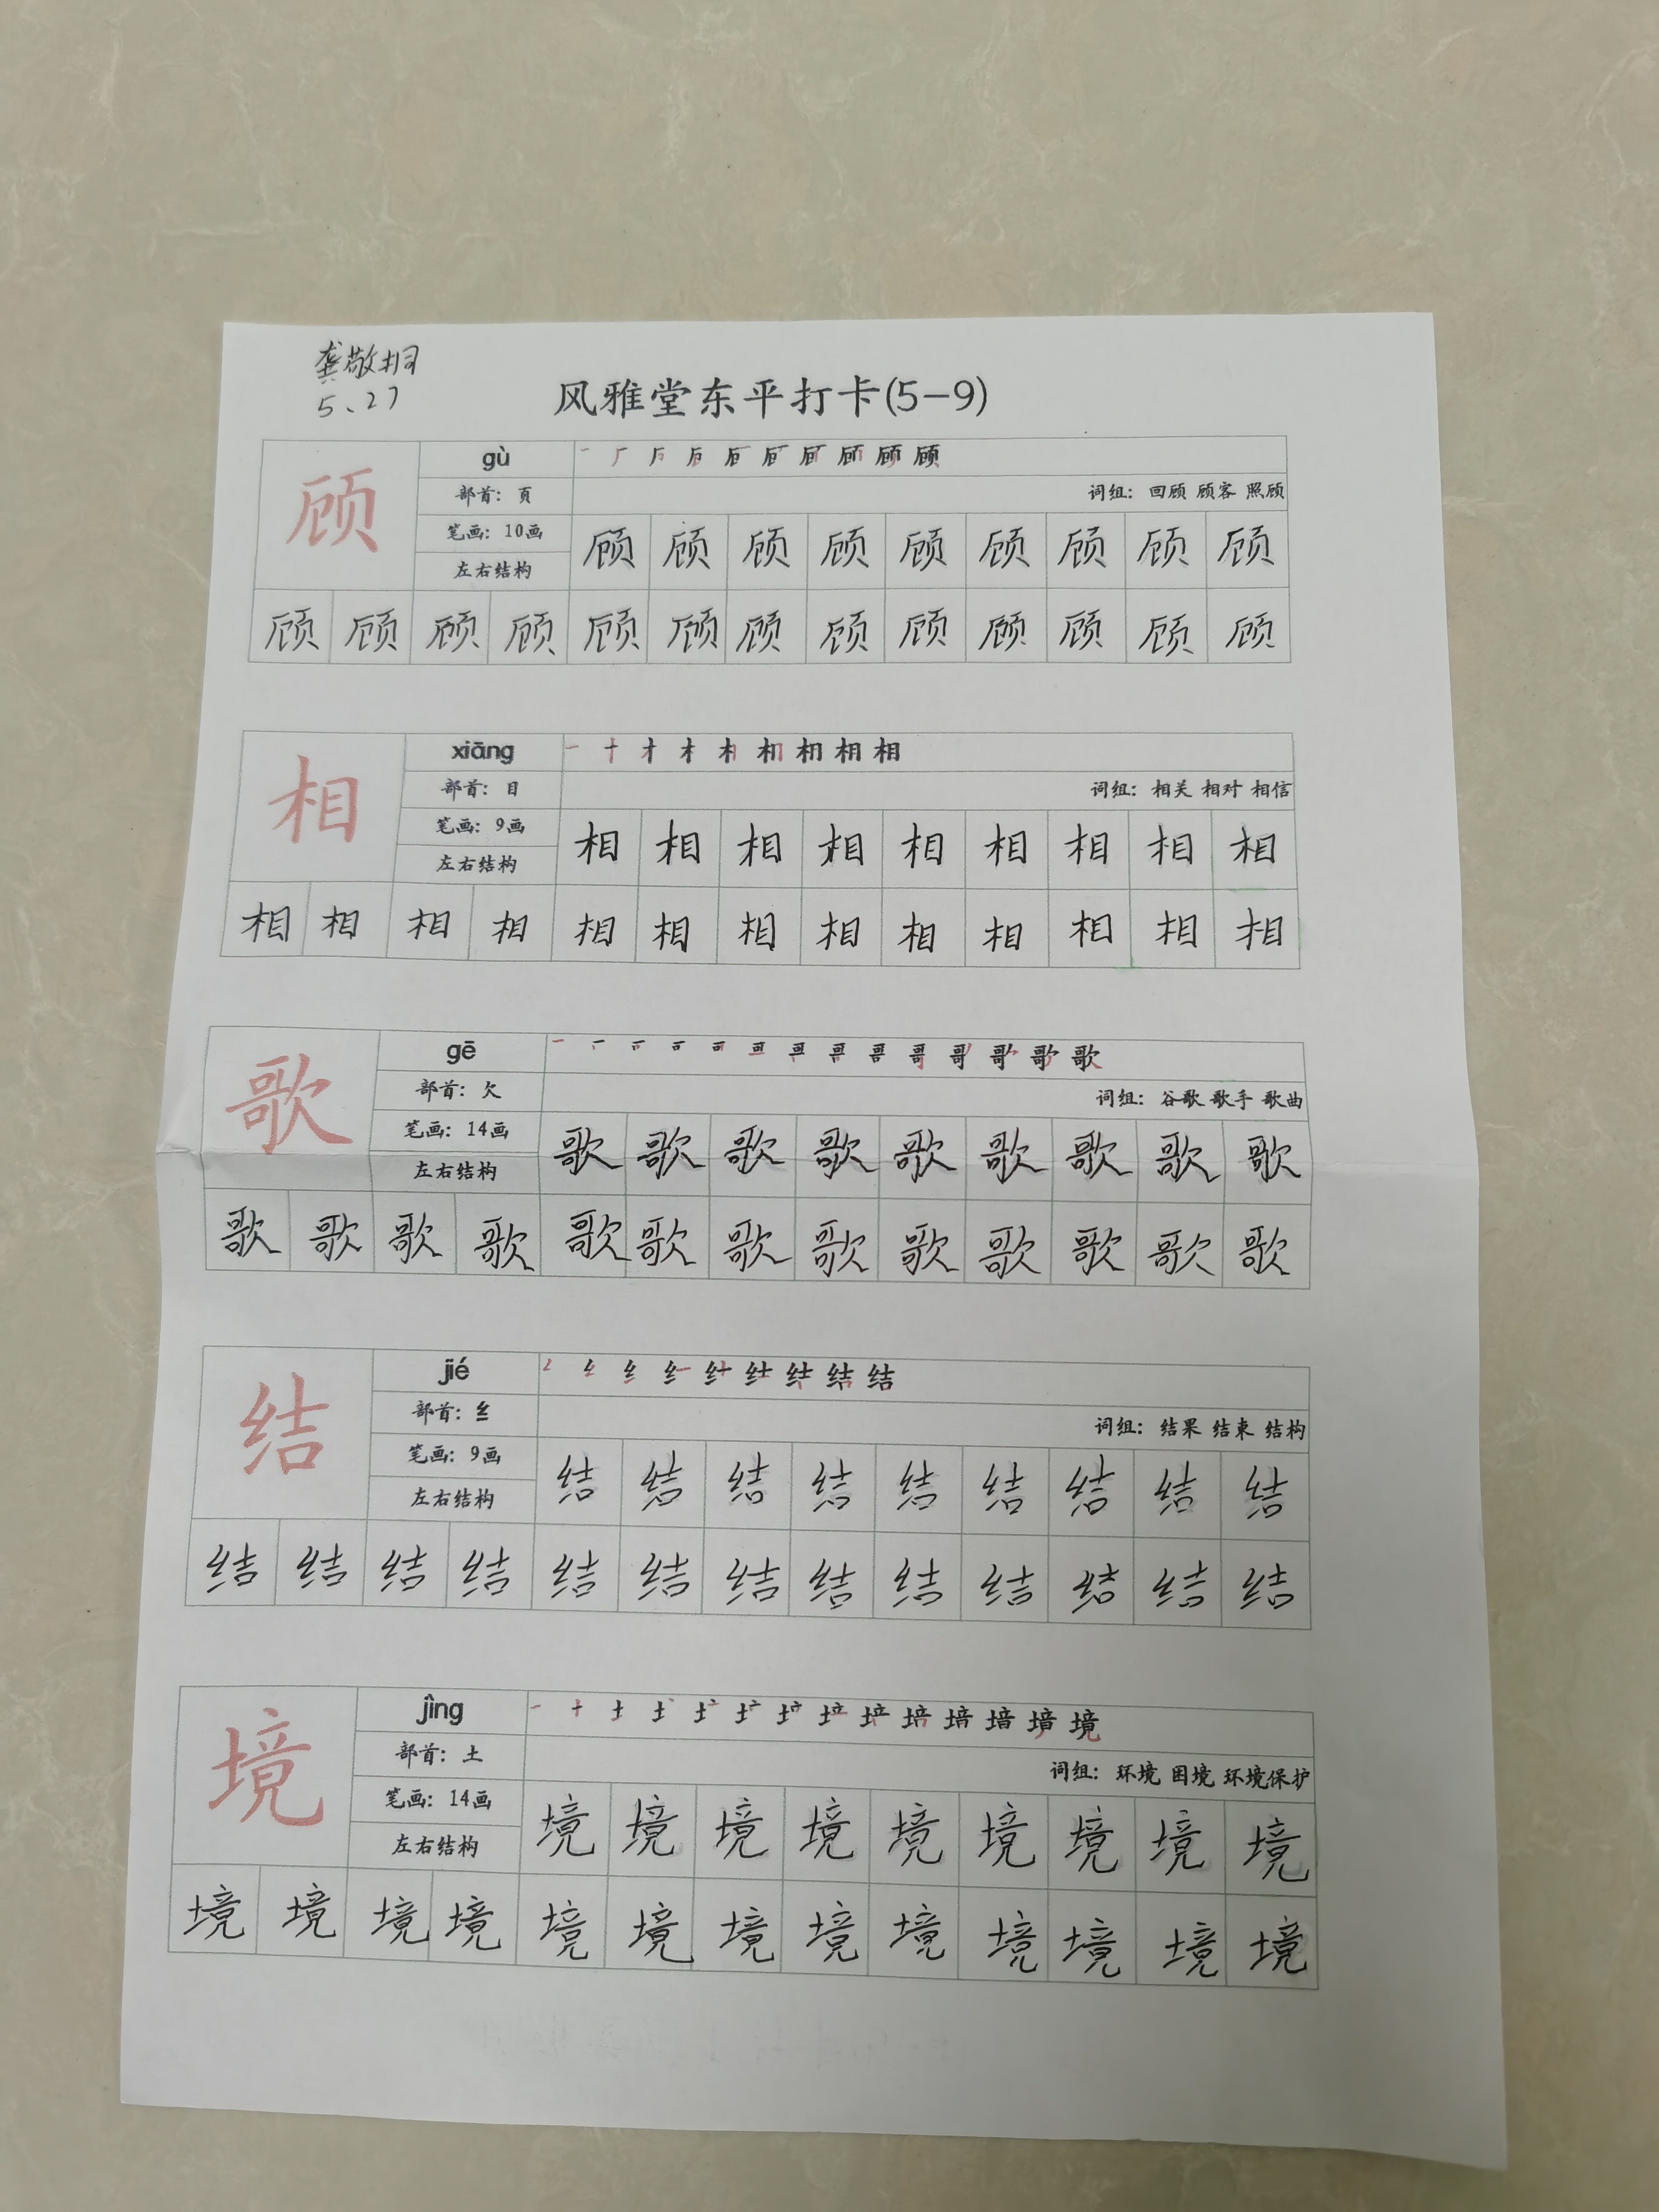 龚敬桐
5、27
风雅堂东平打卡(5-9)
顾
gù
部首：页
词组：回顾 顾客 照顾
笔画：10画
左右结构
顾 顾 顾 顾 顾 顾 顾 顾 顾
顾 顾 顾 顾 顾 顾 顾 顾 顾 顾 顾 顾 顾
相
xiāng
部首：目
词组：相关 相对 相信
笔画：9画
左右结构
相 相 相 相 相 相 相 相 相
相 相 相 相 相 相 相 相 相 相 相 相 相
歌
gē
部首：欠
词组：谷歌 歌手 歌曲
笔画：14画
左右结构
歌 歌 歌 歌 歌 歌 歌 歌 歌
歌 歌 歌 歌 歌 歌 歌 歌 歌 歌 歌 歌 歌
结
jié
部首：纟
词组：结果 结束 结构
笔画：9画
左右结构
结 结 结 结 结 结 结 结 结
结 结 结 结 结 结 结 结 结 结 结 结 结
境
jìng
部首：土
词组：环境 困境 环境保护
笔画：14画
左右结构
境 境 境 境 境 境 境 境 境
境 境 境 境 境 境 境 境 境 境 境 境 境